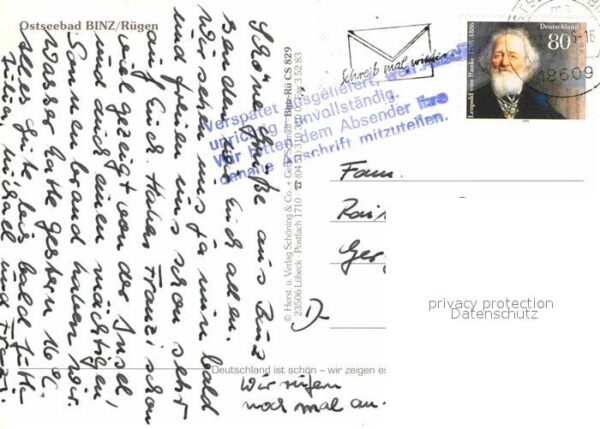 Ostseebad BINZ/Rügen
Schöne Grüße aus Binz
senden wir Euch allen.
Wir sehen uns ja nun bald
und freuen uns schon sehr
auf Euch. Haben Franzi schon
viel gezeigt von der Insel,
und einen mächtigen
Sonnenbrand haben wir.
Wasser hatte gestern 16°C.
Alles Gute bis bald
Michael und Franzi
Wir rufen
noch mal an.
© Herst. u. Verlag Schöning & Co. + Gebr. Schmidt · Binz-Rü CS 829
23506 Lübeck · Postfach 1710 ☎ (04 51) 3 10 3
3 52 83
Deutschland ist schön – wir zeigen es
Schreib mal wieder
Verspätet ausgeliefert, weil
unvollständig.
Wir bitten dem Absender Ihre
Anschrift mitzuteilen.
Deutschland
80
Leopold von Ranke 1795-1886
18609
Fam.
D
privacy protection
Datenschutz